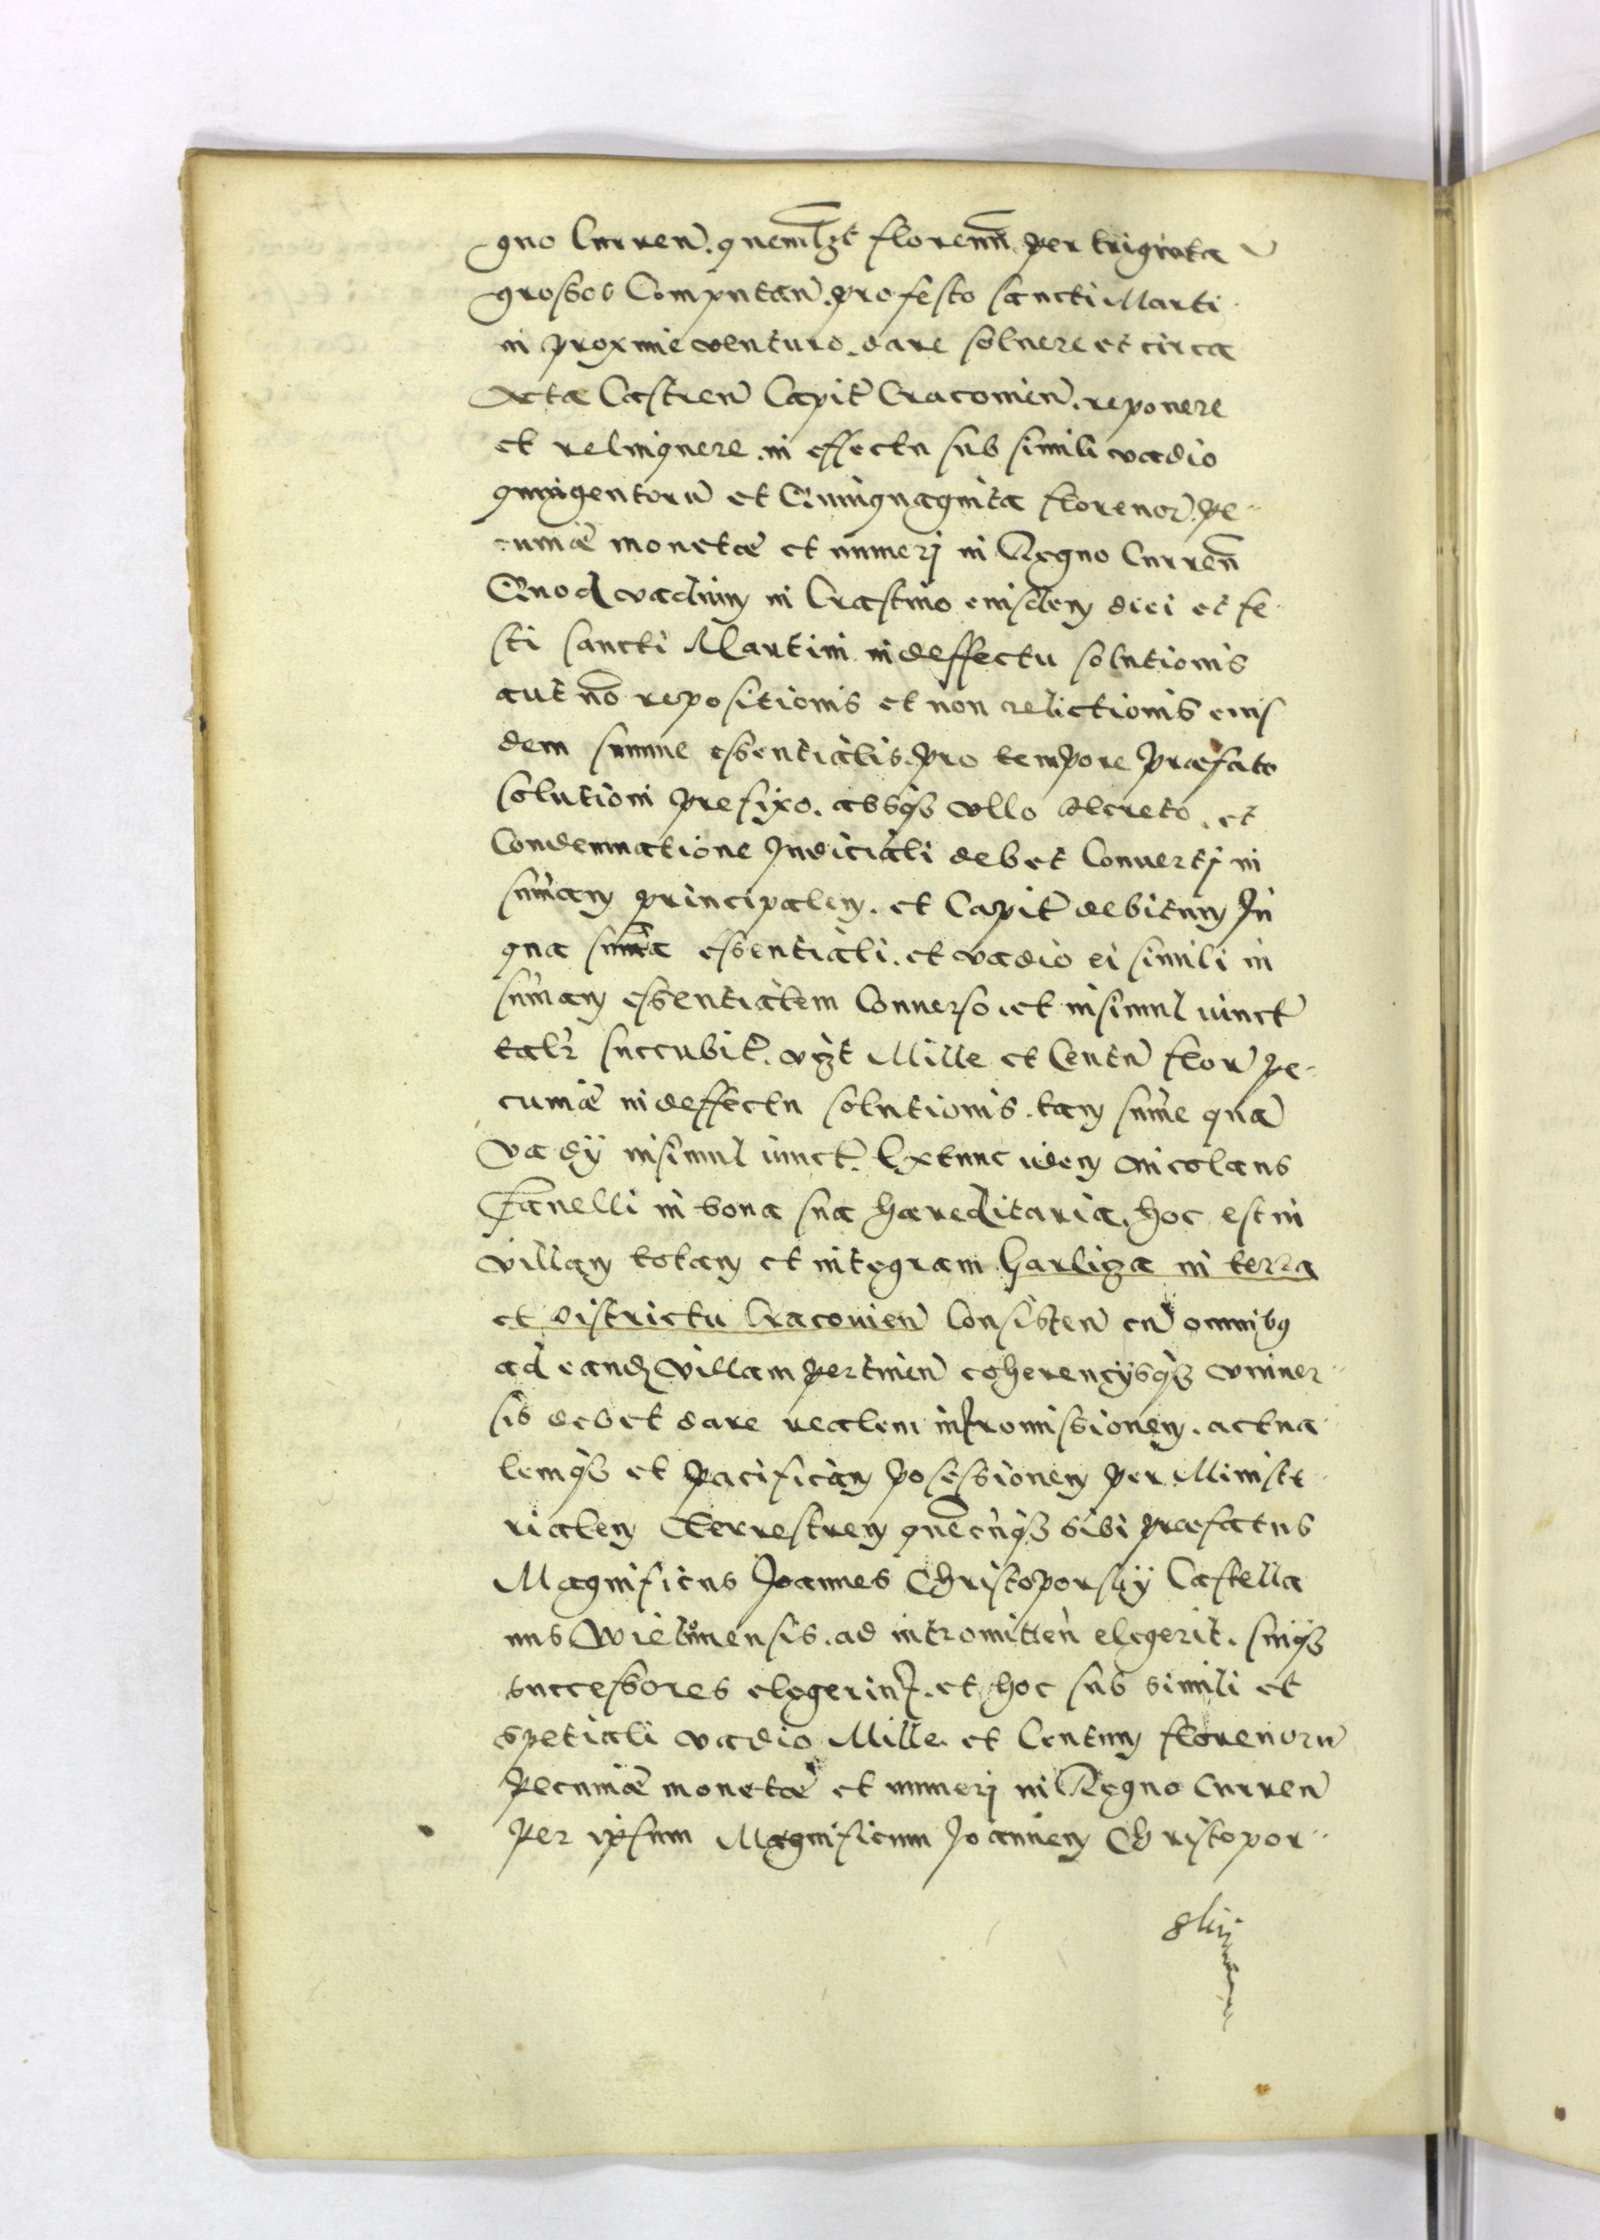 gno Curren̄. quemlꝫt florenū per triginta
grossos Computan̄. pro festo sancti Marti-
ni proxime venturo. dare soluere et circa
Acta Castren̄ Capit̄ Cracouien̄. reponere
et relinquere. in effectu sub simili vadio
quingentorū et Quinquaginta florenor̄. pe-
cuniæ monetæ et numerj in Regno Curren̄
Quod vadium in Crastino eiusdem diei et fe-
sti sancti Martini in deffectu solutionis
aut nō repositionis et non relictionis eius
dem summe essentialis. pro tempore præfato
solutioni prefixo. absqꝫ vllo decreto. et
Condemnatione Judiciali debet Conuertj in
sūmam principalem. et Capit̄ debitum In
qua sūma essentiali. et vadio ei simili in
sūmam essentialem Conuerso. et insimul iunct̄
talr̄ succubit̄. vꝫt Mille et Centū flor̄ pe-
cuniæ in deffectu solutionis. tam sūme quā
Vadÿ insimul iunct̄. Extunc idem Nicolaus
Fanelli in bona sua hæreditaria. hoc est in
villam totam et integram Garliza in terra
et districtu Cracouien̄ Consisten̄ cū omnibꝰ
ad eandꝫ villam pertinen̄ coherencÿsqꝫ vniuer-
sis debet dare realem intromissionem. actua-
lemqꝫ et pacificam possessionem per Ministe-
rialem Terrestrem quēcunqꝫ sibi præfatus
Magnificus Joannes Christoporskÿ Castella
nus Wielunensis. ad intromitten̄ elegerit. suiqꝫ
successores elegerint. et hoc sub simili et
spetiali vadio Mille et Centum florenorū
Pecuniæ monetæ et numerj in Regno Curren̄
per ipsum Magnificum Joannem Christopor-